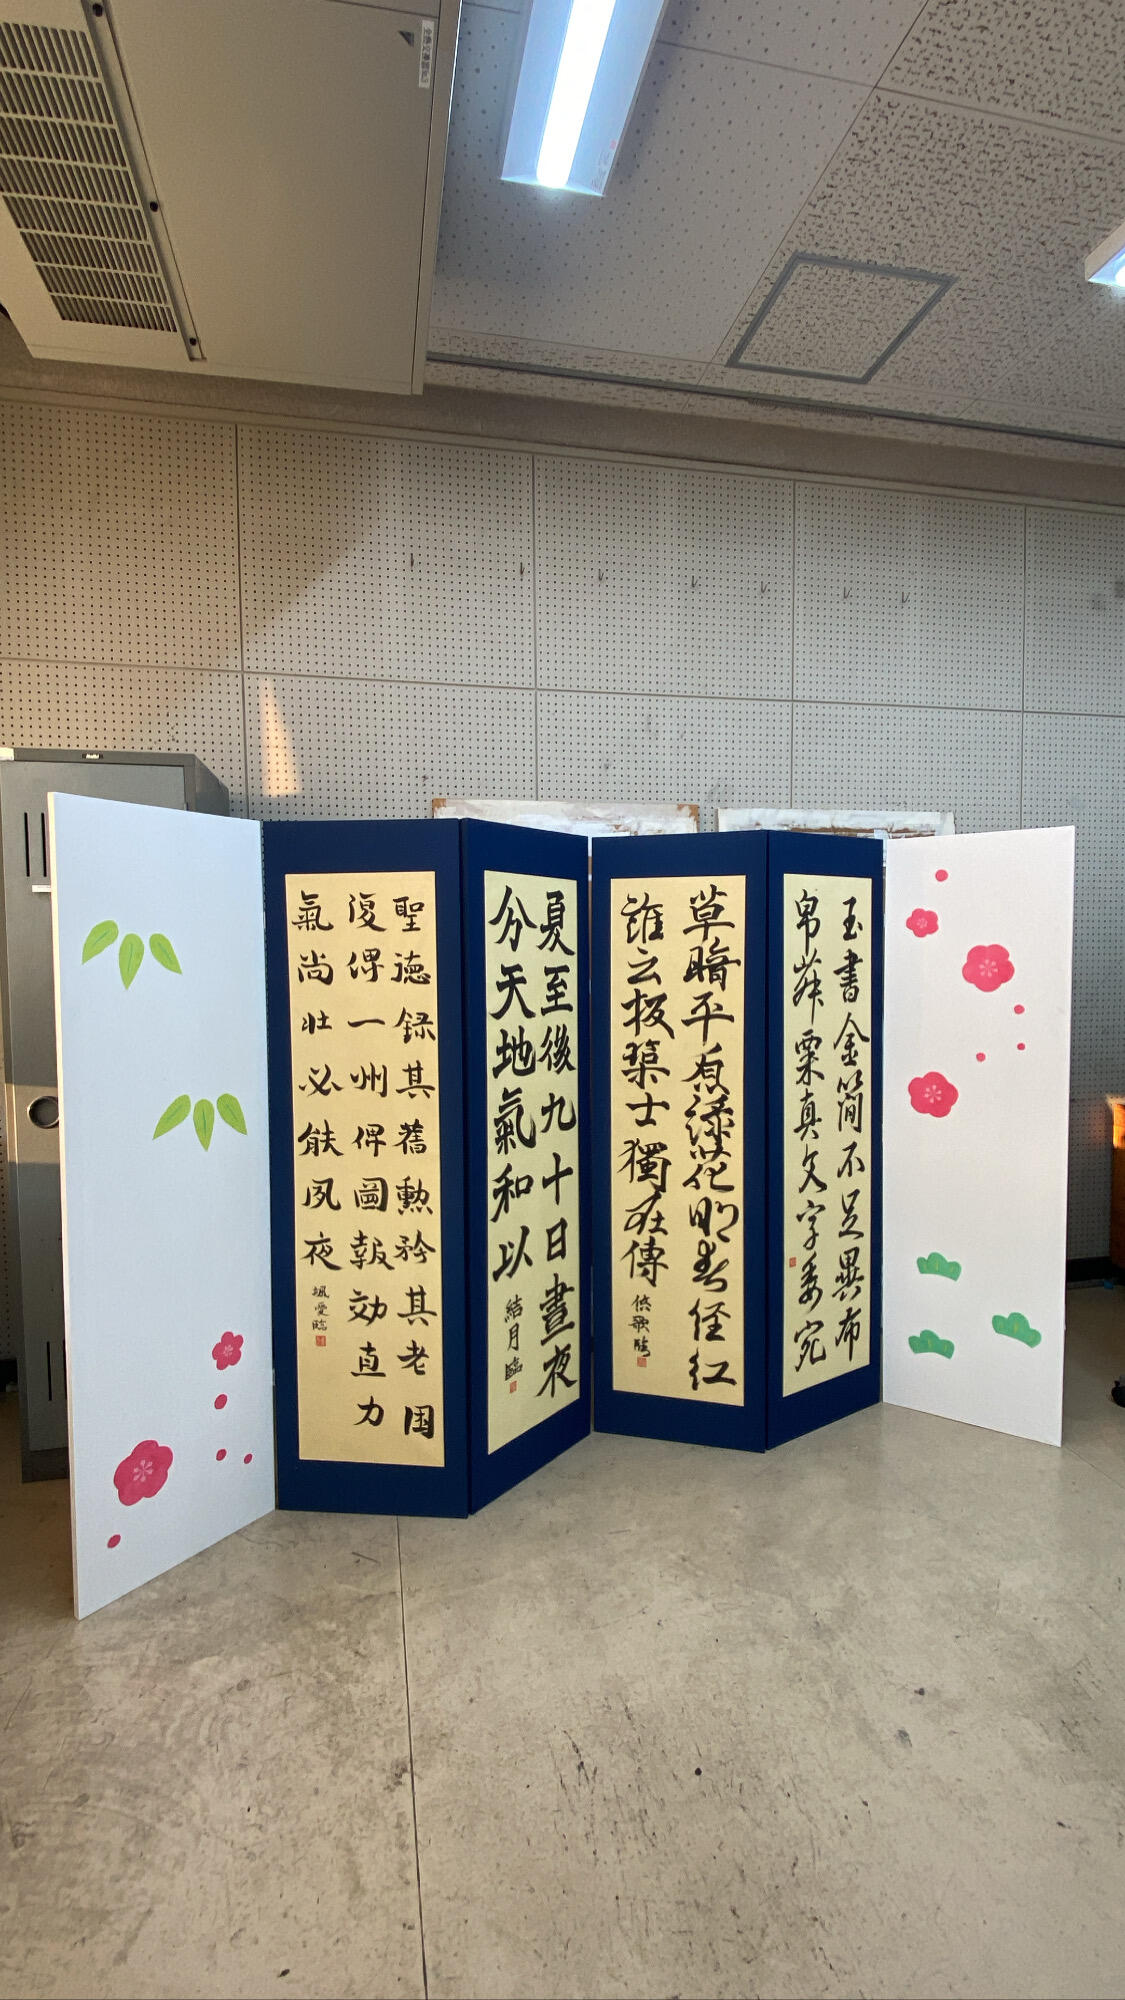 玉書金簡不足異布
帛菽粟真文字委宛
草暗平原綠花明春徑紅
誰云板築士獨在傅
悠歌臨
夏至後九十日晝夜
分天地氣和以
結月臨
聖德錄其舊勲矜其老困
復俾一州俾圖報効直力
氣尚壯必能夙夜
颯愛臨